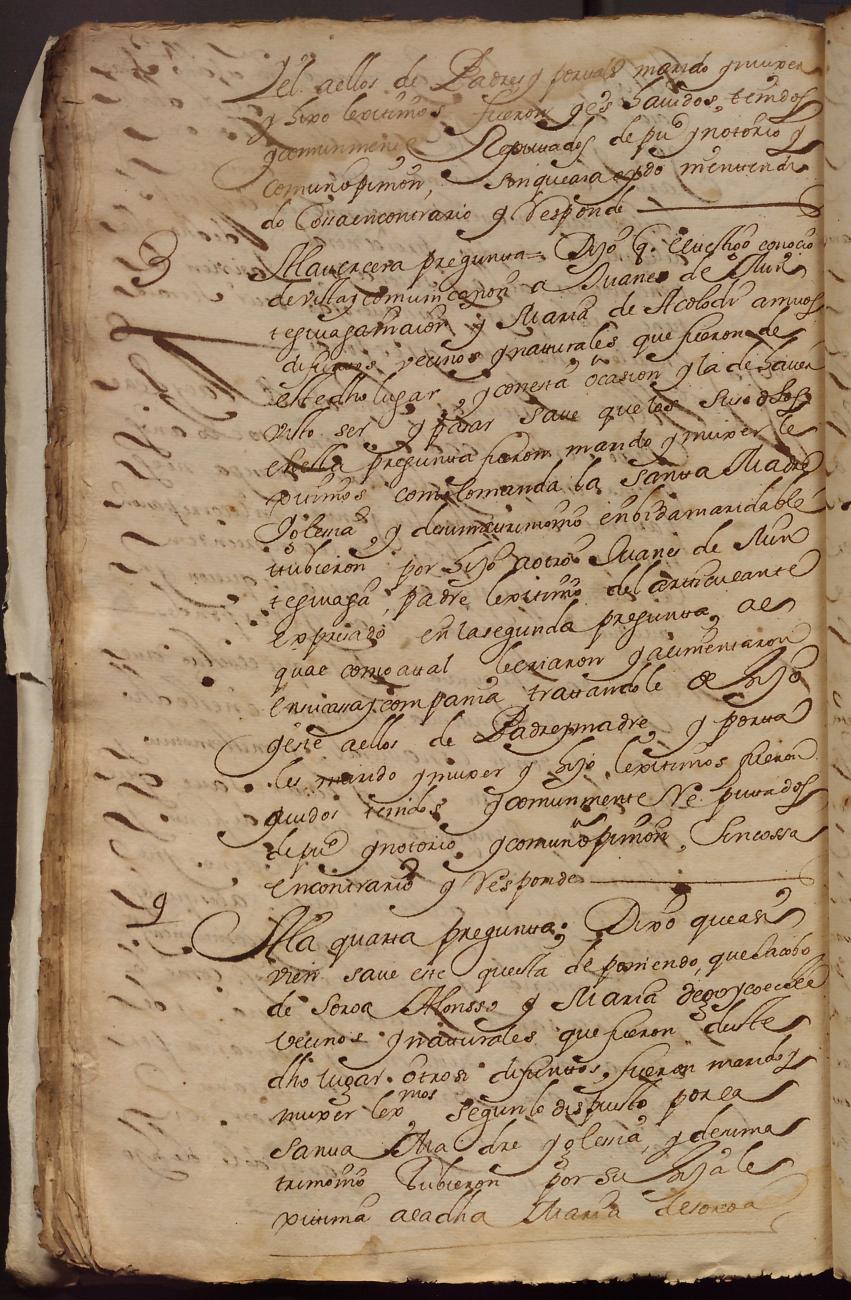 el aellos de Padres y portales marido y muxer
y hixo lexitimos fueron y es havidos, tenidos
y comunmente Reputados de puco y notorio y
comun opinion, sin que aia oydo ni entendi
do Cossa en contrario y Responde
3 Ala tercera pregunta = Dijo q. el testigo conocio
de vista y comunicacion a Juanes de Mun
teguiaga maior y Maria de Acolodi amvos
difuntos vecinos y naturales que fueron de
este dho lugar, y con esta ocasion y la de haver
visto ser y pasar save que los suso dhos
en ella pregunta fueron marido y muxer le
xitimos como lo manda la Santa Madre
Yglesia, y de su matrimonio en bida maridable
tubieron por hijo a otro Juanes de Mun
teguiaga, padre lexitimo del articulante
expresado en la segunda pregunta, a el
qual como a tal le criaron y alimentaron
en su casa y compania tratandole de hijo
y este a ellos de Padre y madre, y por ta
les marido y muxer y hijo lexitimos fueron
avidos tenidos y comunmente Reputados
de puco y notorio y comun opinion, Sin cossa
en contrario y Responde
4 A la quarta pregunta: Dixo que asi
vien save este questa deponiendo, que Jacobo
de Soroa Alonsso y Maria de goycoechea
vecinos y naturales que fueron deste
dho lugar otrosi difuntos, fueron marido y
muxer lexmos segun lo dispuesto por la
Santa Madre Yglesia, y de su ma
trimonio tubieron por su hija le
xitima a la dha Maria de soroa